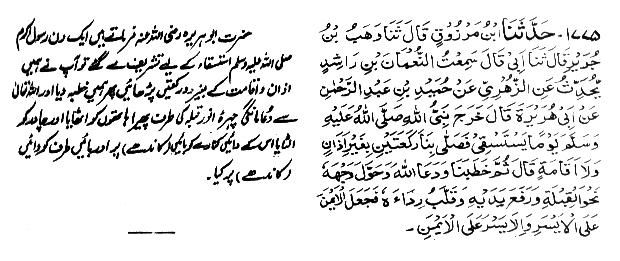 ۱۷۷۵- حَدَّثَنَا ابْنُ مَرْزُوْقٍ قَالَ ثَنَا وَهْبُ بْنُ
جُرَيْرٍ قَالَ ثَنَا اَبِىْ قَالَ سَمِعْتُ النُّعْمَانَ بْنَ رَاشِدٍ
يُحَدِّثُ عَنِ الزُّهْرِىِّ عَنْ حُمَيْدِ بْنِ عَبْدِ الرَّحْمٰنِ
عَنْ اَبِىْ هُرَيْرَةَ قَالَ خَرَجَ نَبِىُّ اللهِ صَلَّى اللهُ عَلَيْهِ
وَسَلَّمَ يَوْمًا يَسْتَسْقِىْ فَصَلّٰى بِنَا رَكْعَتَيْنِ بِغَيْرِ اَذَانٍ
وَلَا اَقَامَةٍ قَالَ ثُمَّ خَطَبَنَا وَدَعَا اللهَ وَحَوَّلَ وَجْهَهٗ
نَحْوَ الْقِبْلَةِ وَرَفَعَ يَدَيْهِ وَقَلَّبَ رِدَاءَهٗ فَجَعَلَ الْاَيْمَنَ
عَلَى الْاَيْسَرِ وَالْاَيْسَرَ عَلَى الْاَيْمَنِ -
حضرت ابوہریرہ رضی اللہ عنہ فرماتے ہیں ایک دن رسول اکرم
صلی اللہ علیہ وسلم استسقاء کے لیے تشریف لے گئے تو آپ نے ہمیں
اذان و اقامت کے بغیر دو رکعتیں پڑھائیں پھر ہمیں خطبہ دیا اور اللہ تعالیٰ
سے دعا مانگی چہرۂ انور قبلہ کی طرف پھیرا ہاتھوں کو اٹھایا اور چادر کو
الٹایا اس کے دائیں کنارے کو بائیں (کاندھے) پر اور بائیں طرف کو دائیں
(کاندھے) پر کیا۔